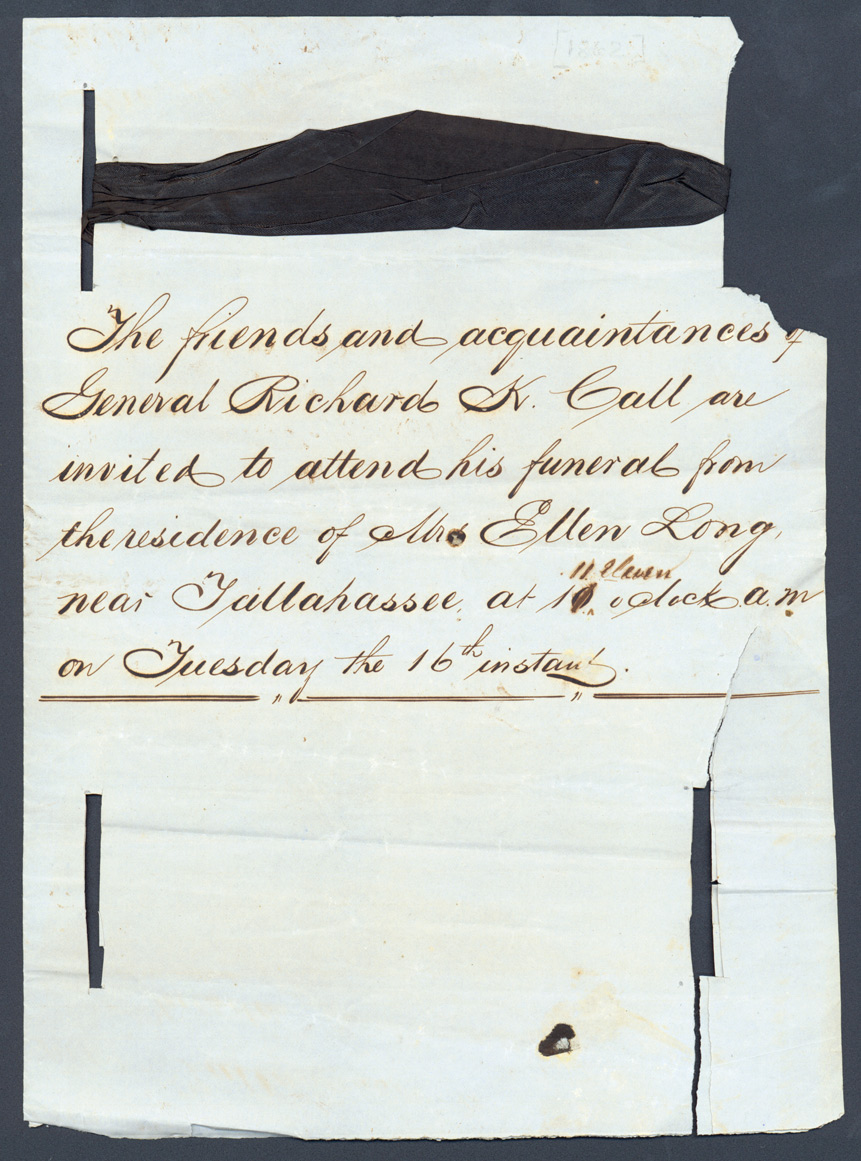 The friends and acquaintances of
General Richard K. Call are
invited to attend his funeral from
the residence of Mrs Ellen Long,
near Tallahassee, at 11 Eleven o'clock a.m
on Tuesday the 16th instant.